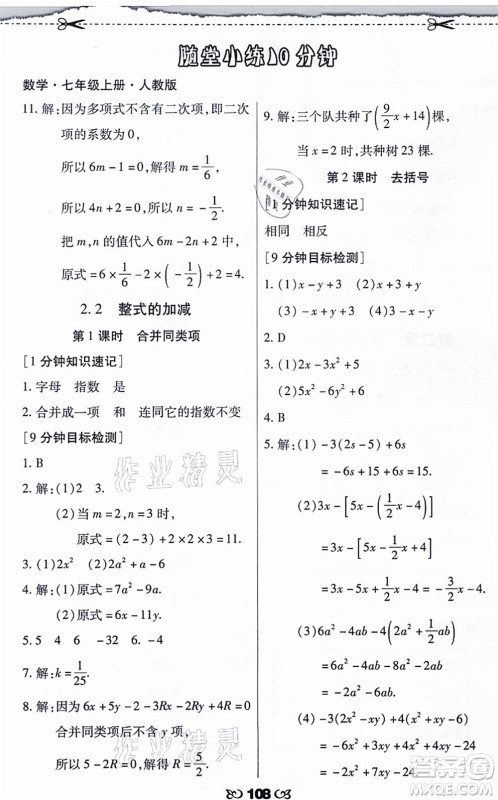 随堂小练10分钟
数学·七年级上册·人教版
11. 解:因为多项式不含有二次项,即二次
项的系数为0,
所以 6m-1=0,解得 m=1/6,
所以 4n+2=0,解得 n=-1/2.
把 m,n 的值代入,
原式=6×1/6-2×(-1/2)+2=4.
2.2 整式的加减
第1课时 合并同类项
[1分钟知识速记]
1. 字母 指数 是
2. 合并成一项 和 连同它的指数不变
[9分钟目标检测]
1. B
2. 解:(1)2 3.
(2)当 m=2,n=1 时,
原式=(2-3)+2×2×3=11.
3. (1)2x² (2)2a²+a-6
4. 解:(1)原式=7a²-9a.
(2)原式=6x-11y.
5. 5 4 6 -32 6. D
7. 解:k=1/25.
8. 解:因为 6x+5y-2-3Rx-2Ry+4R=0
合并同类项后不含 y 项,
所以 5-2R=0,解得 R=5/2.
9. 解:三个队共种了(9/2x+14)棵,
当 x=2 时,共种树 23 棵.
第2课时 去括号
[1分钟知识速记]
相同 相反
[9分钟目标检测]
1. (1)x-y+3 (2)-x-y+3
(3)-x+y (4)-x-2
2. D
3. (1)2x-3x²+5
(2)5x²-7x+5
4. B
5. 解:(1)-3(2s-5)+6s
=-6s+15+6s
=15.
(2)3x-[5x-(1/2x-4)]
=3x-[5x-1/2x+4]
=3x-5x+1/2x-4=-3/2x-4.
(3)6a²-4ab-4(2a²+1/2ab)
=6a²-4ab-8a²-2ab
=-2a²-6ab.
(4)-3(2x²-xy)+4(x²+xy-6)
=-6x²+3xy+4x²+4xy-24
=-2x²+7xy-24
108
作业精灵
作业精灵
答案圈
MXQE.COM